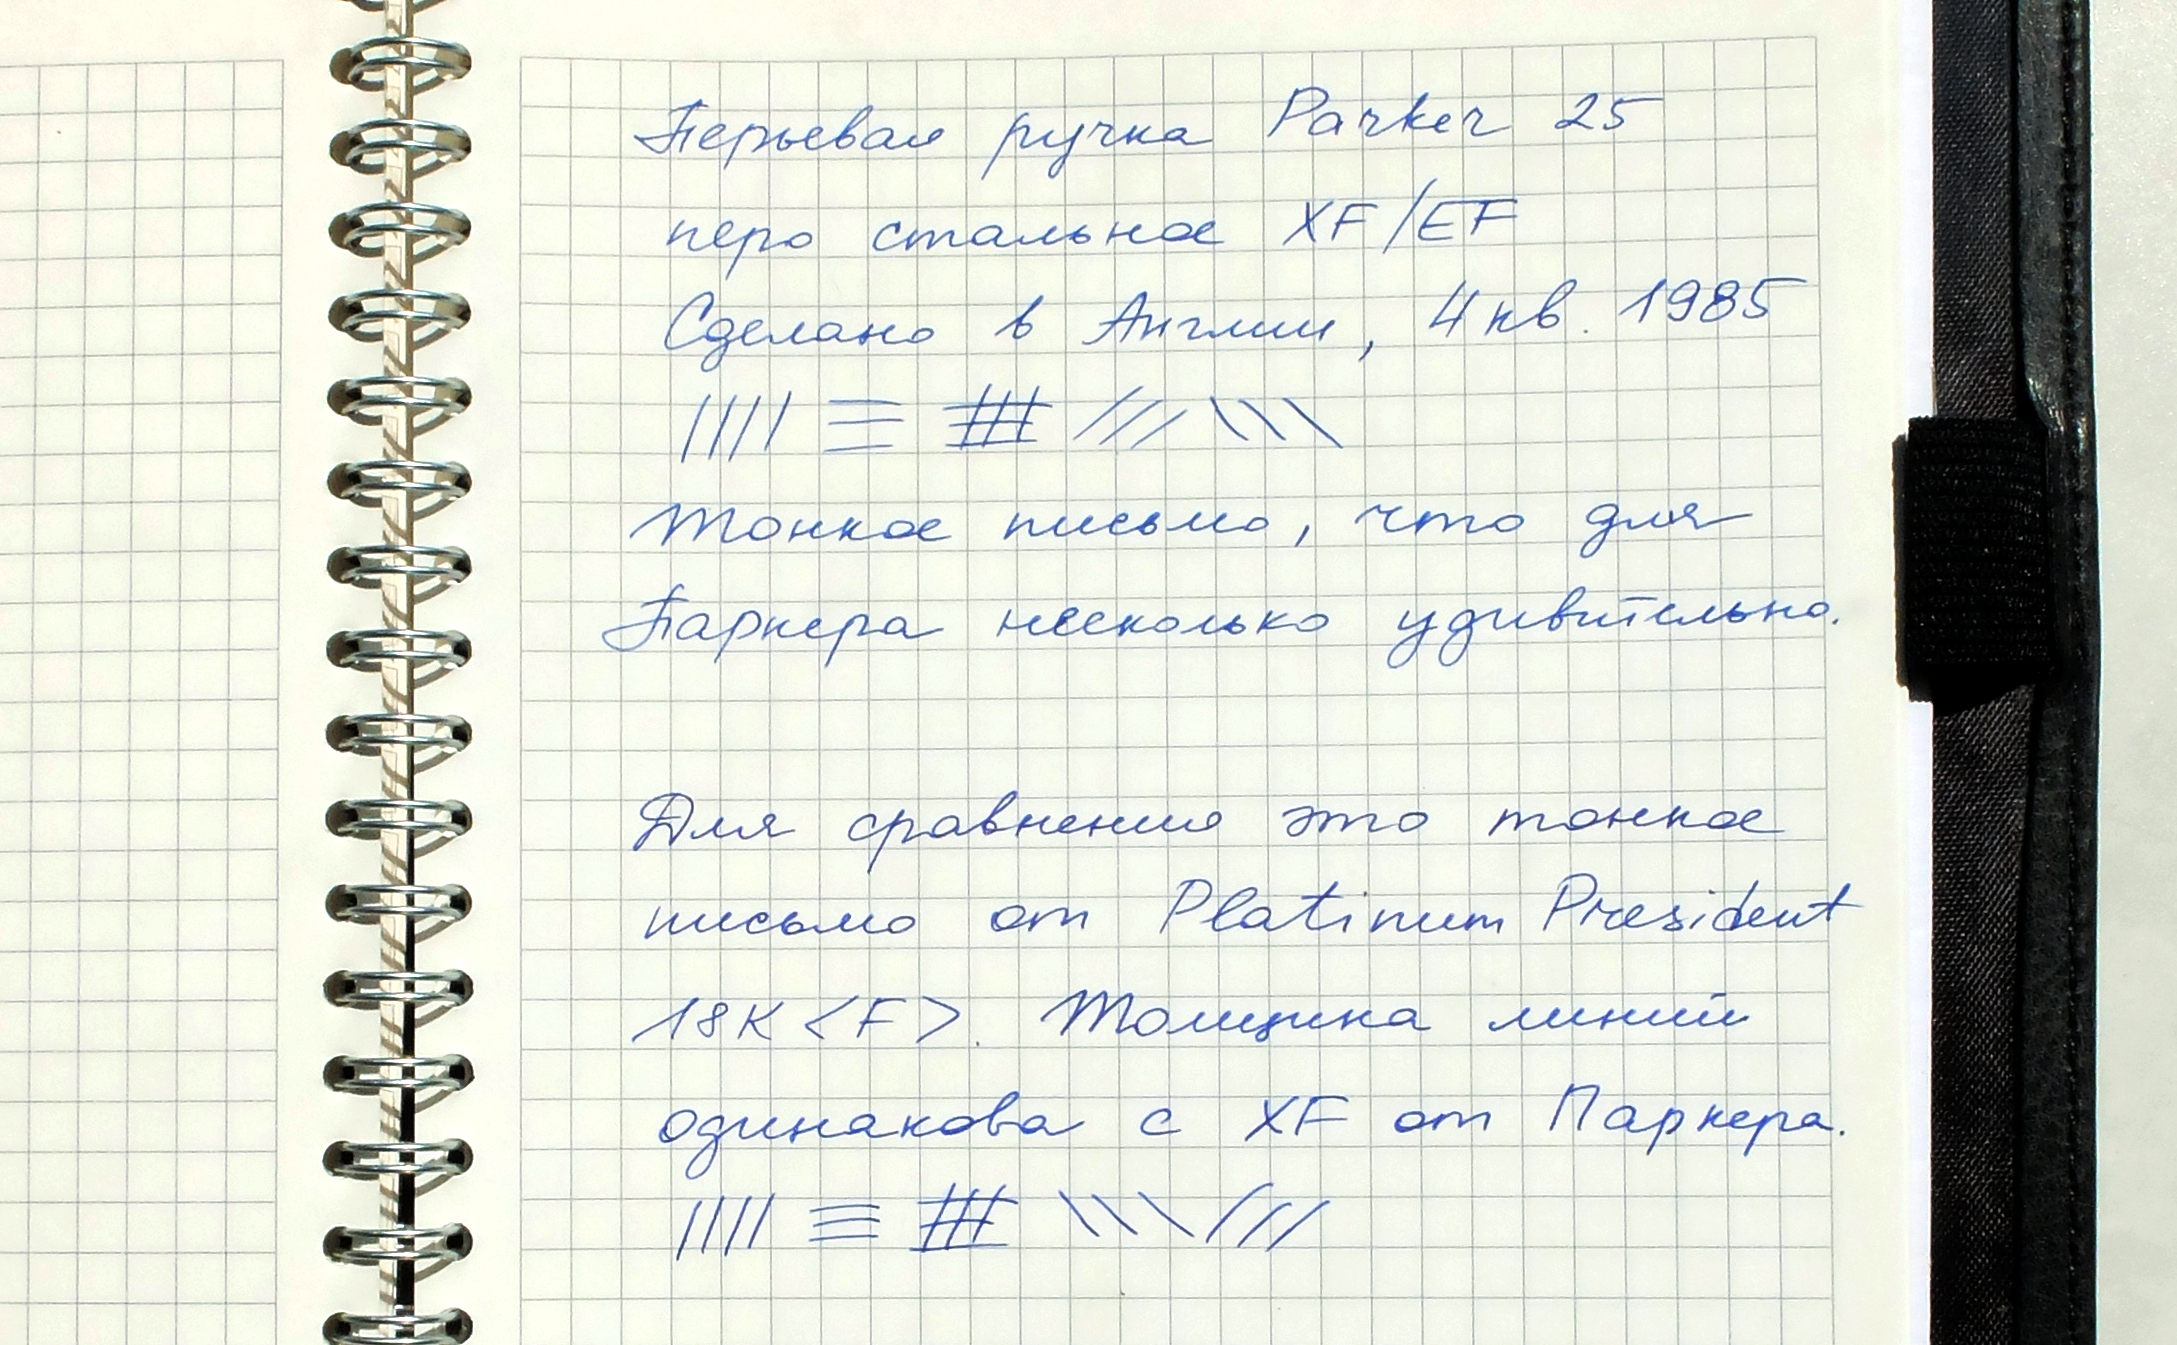 Перьевая ручка Parker 25
перо стальное XF/EF
Сделано в Англии, 4 кв. 1985
Тонкое письмо, что для
Паркера несколько удивительно.
Для сравнения это тонкое
письмо от Platinum President
18K <F>. Толщина линий
одинакова с XF от Паркера.